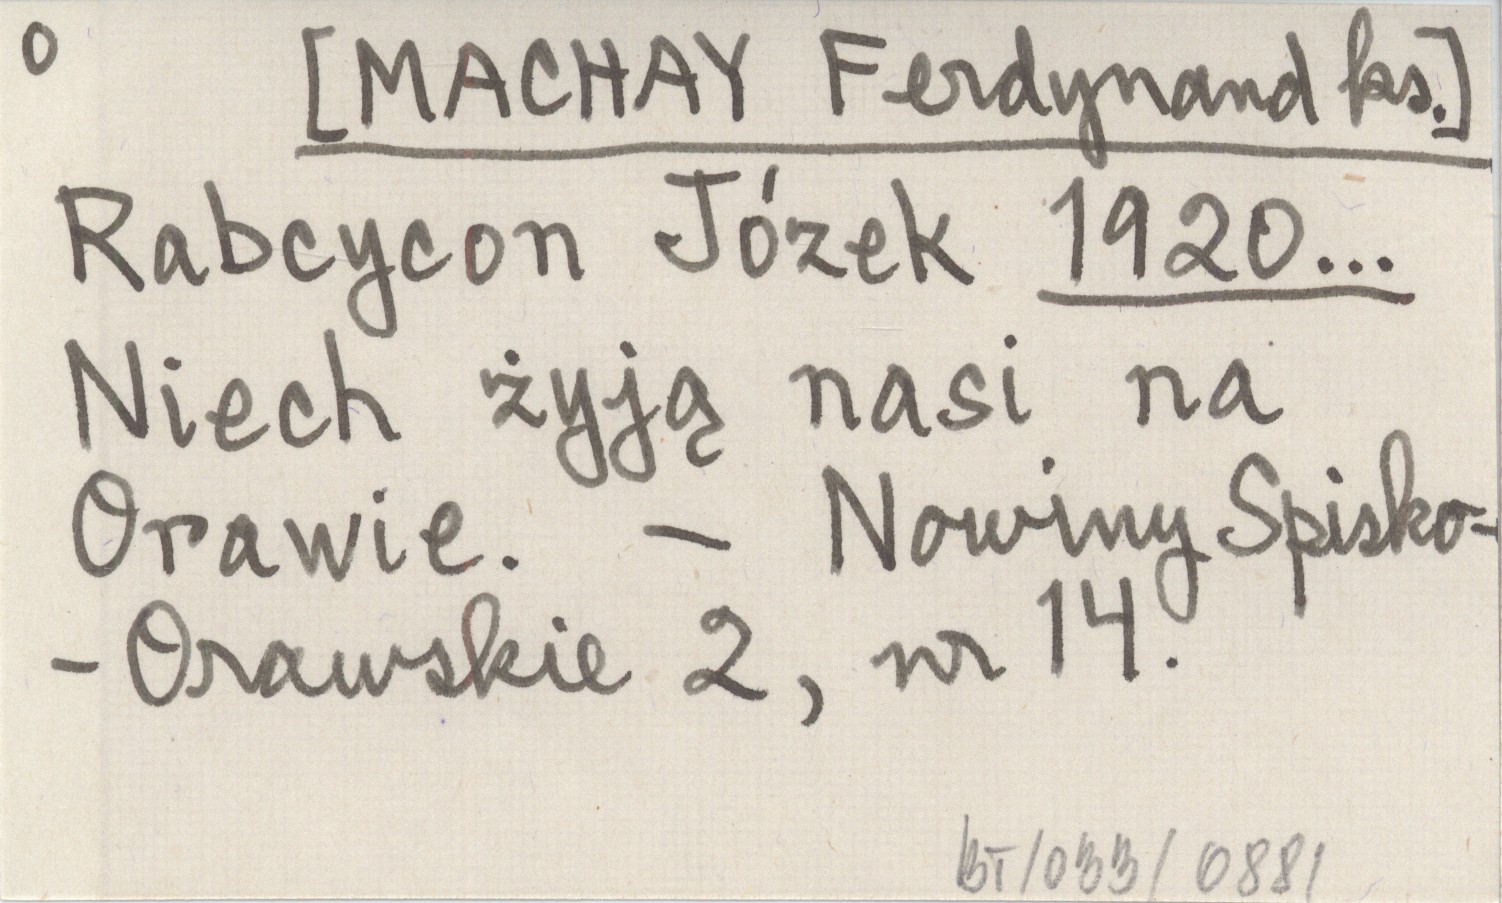 O [MACHAY Ferdynand ks.]
Rabcycon Józek 1920...
Niech żyją nasi na
Orawie. – Nowiny Spisko-
-Orawskie 2, nr 14.
BT/033/0881